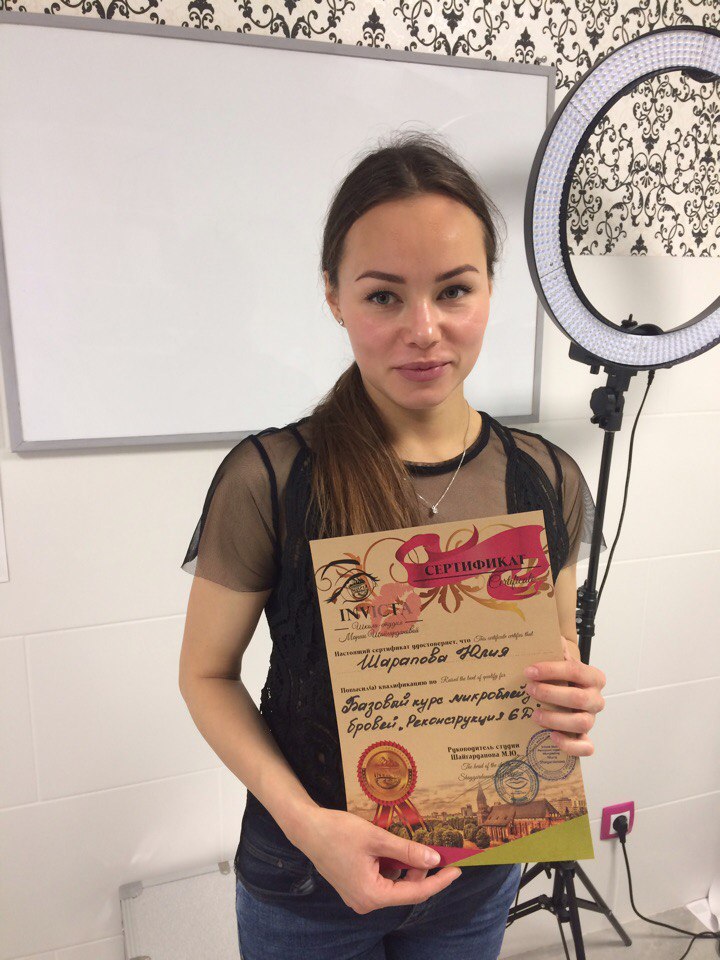 СЕРТИФИКАТ
Certificate
INVICTA
Школа-студия
Марии Шайгардановой
Настоящий сертификат удостоверяет, что This certificate certifies that
Шарапова Юлия
Повысил(а) квалификацию по Raised the level of qualify for
Базовый курс микроблейд
бровей „Реконструкция 6D"
Руководитель студии
Шайгарданова М.Ю.
The head of the